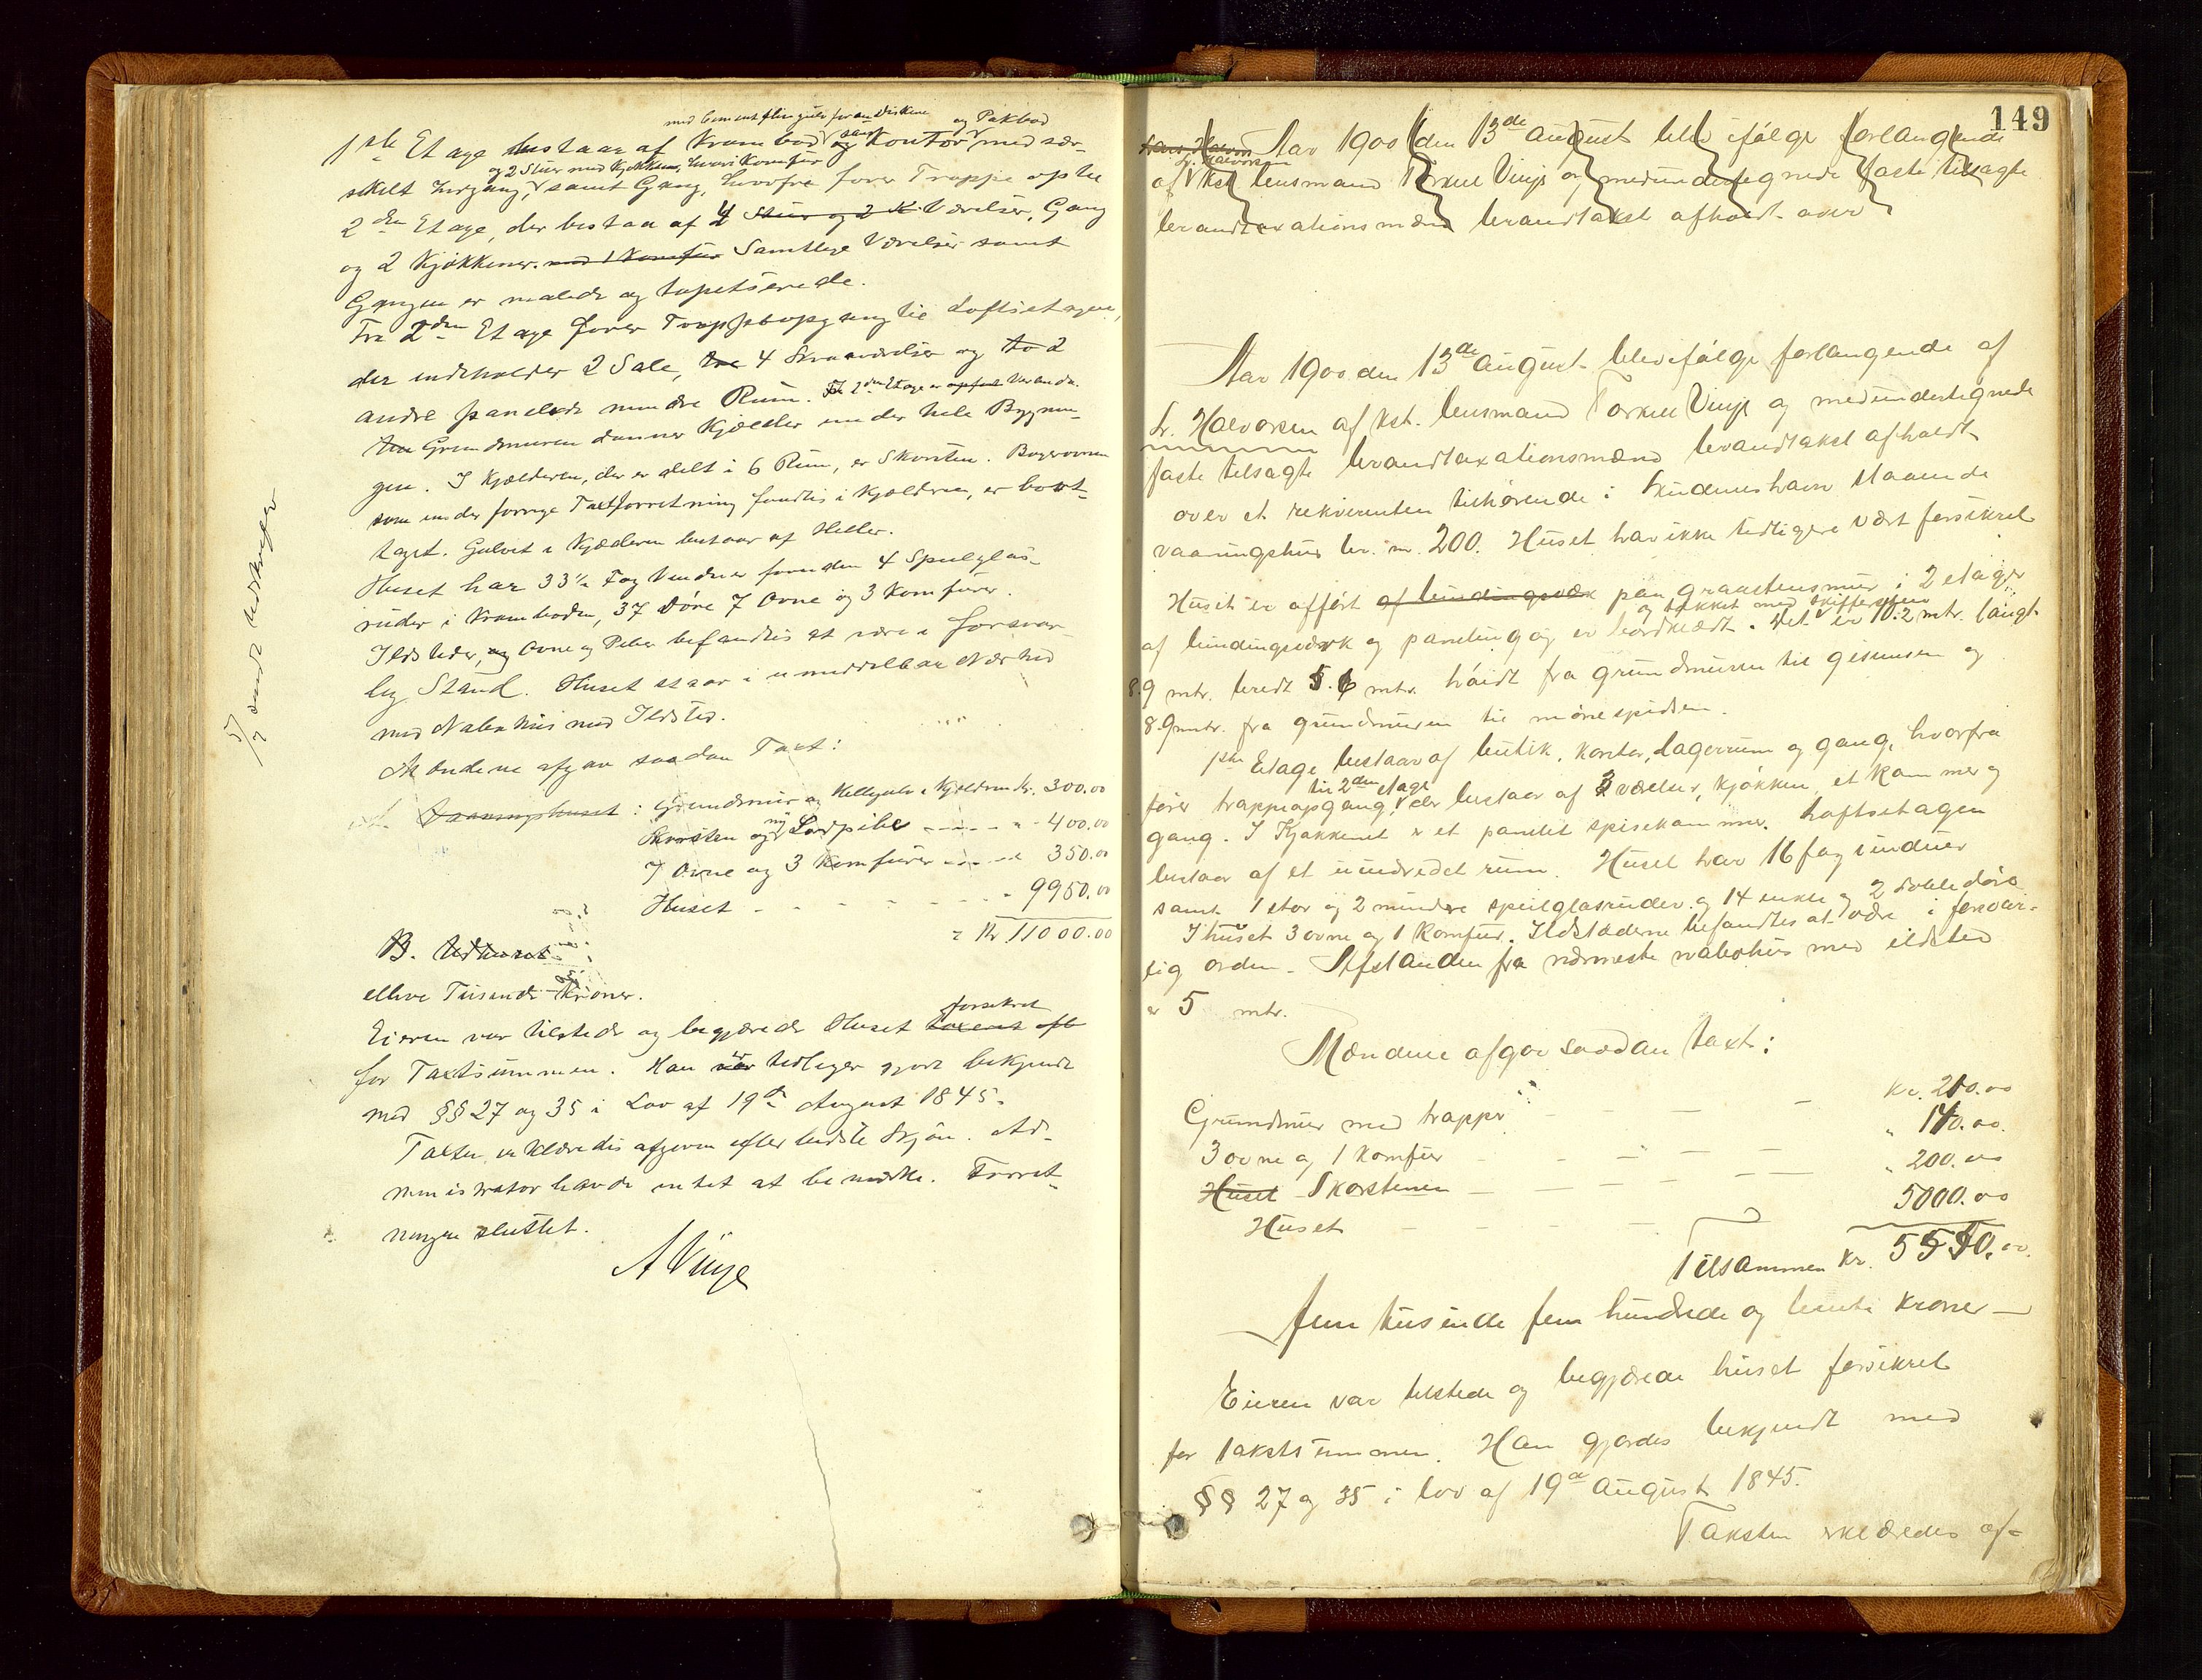 med Cement flis gulv foran Disken og Pakbod
1ste Etage bestaar af Krambod samt og Kontor med sær-
og 2 Stuer med Kjøkken, hvori Komfur
skilt Indgang, samt Gang, hvorfra fører Trappe op til
2den Etage, der bestaa af 4 Stuer og 2 K Værelser, Gang
og 2 Kjøkkener. med 1 Komfur Samtlige Værelser samt
Gangen er malede og tapetserede.
Fra 2den Etage fører Trappeopgang til Loftsetagen,
der indeholder 2 Sale, tre 4 Skraaværelser og to 2
andre panelede mindre Rum. Til 2den Etage er opført Veranda.
Grundmuren danner Kjælder under hele Bygnin-
gen. I Kjælderen, der er delt i 6 Rum, er Skorsten. Bagerovnen
som under forrige Taxtforretning fandtes i Kjælderen, er bort-
taget. Gulvet i Kjælderen bestaar af Heller.
Huset har 33½ Fag Vinduer foruden 4 Speilglas-
ruder i Kramboden, 37 Døre 7 Ovne og 3 Komfurer.
Ildsteder, og Ovne og Piber befandtes at være i forsvar-
lig Stand. Huset staar i umiddelbar Nærhed
med Nabohus med Ildsted.
Mændene afgav saadan Taxt:
Vaaningshuset: Grundmur og Hellegulv i Kjælderen Kr. 300.00
Skorsten og ny Jordpibe - - - - - 400.00
7 Ovne og 3 Komfurer - - - - 350.00
Huset - - - - - - - - 9950.00
= Kr 11000.00
B. Udhuset
elleve Tusinde Kroner.
forsikret
Eieren var tilstede og begjærede Huset taxeret eft
for Taxtsummen. Han er var tidligere gjort bekjendt
med §§ 27 og 35 i Lov af 19de August 1845.
Taxten erklæredes afgiven efter bedste Skjøn. Ad-
ministrator havde intet at bemærke. Forret-
ningen sluttet.
A Vinje
5/7 sendt Udskrift
149
Hans Halvors Aar 1900 den 13de august blev ifølge forlangende
L. Halvorsen
af kst. lensmand Torkell Vinje og medundertegnede faste tilsagte
brandtaxationsmænd brandtakst afholdt over
Aar 1900 den 13de august blev ifølge forlangende af
L. Halvorsen af kst. lensmand Torkell Vinje og medundertegnede
faste tilsagte brandtaxationsmænd brandtakst afholdt
over et rekvirenten tilhørende i Skudeneshavn staaende
vaaningshus br. nr. 200. Huset har ikke tidligere vært forsikret
Huset er opført af bindingsværk paa graastensmur i 2 etager
og tækket med skiffersten
af bindingsværk og paneling og er bordklædt. Det er 10.2 mtr. langt
8.9 mtr. bredt 5.6 mtr. høidt fra grundmuren til gesimsen og
8.9 mtr. fra grundmuren til mønespidsen.
1ste Etage bestaar af butik, kontor, lagerrum og gang, hvorfra
til 2den etage
fører trappeopgang, der bestaar af 3 værelser, kjøkken, et kammer og
gang. I Kjøkkenet er et panelet spisekammer. Loftsetagen
bestaar af et uindredet rum. Huset har 16 fag vinduer
samt 1 stor og 2 mindre speilglasruder. og 14 enkle og 2 doble døre
I huset 3 ovne og 1 Komfur. Ildstederne befandtes at være i forsvar-
lig orden. Afstanden fra nærmeste nabohus med ildsted
er 5 mtr.
Mændene afgav saadan taxt:
Grundmur med trappe - - - kr. 210.00
3 ovne og 1 komfur - - - " 140.00
Huset Skorstenen - - - " 200.00
Huset - - - 5000.00
Tilsammen kr. 5550.00
Fem tusinde fem hundrede og femti kroner —
Eieren var tilstede og begjærede huset forsikret
for takstsummen. Han gjordes bekjendt med
§§ 27 og 35 i lov af 19de august 1845.
Taksten erklæredes af-